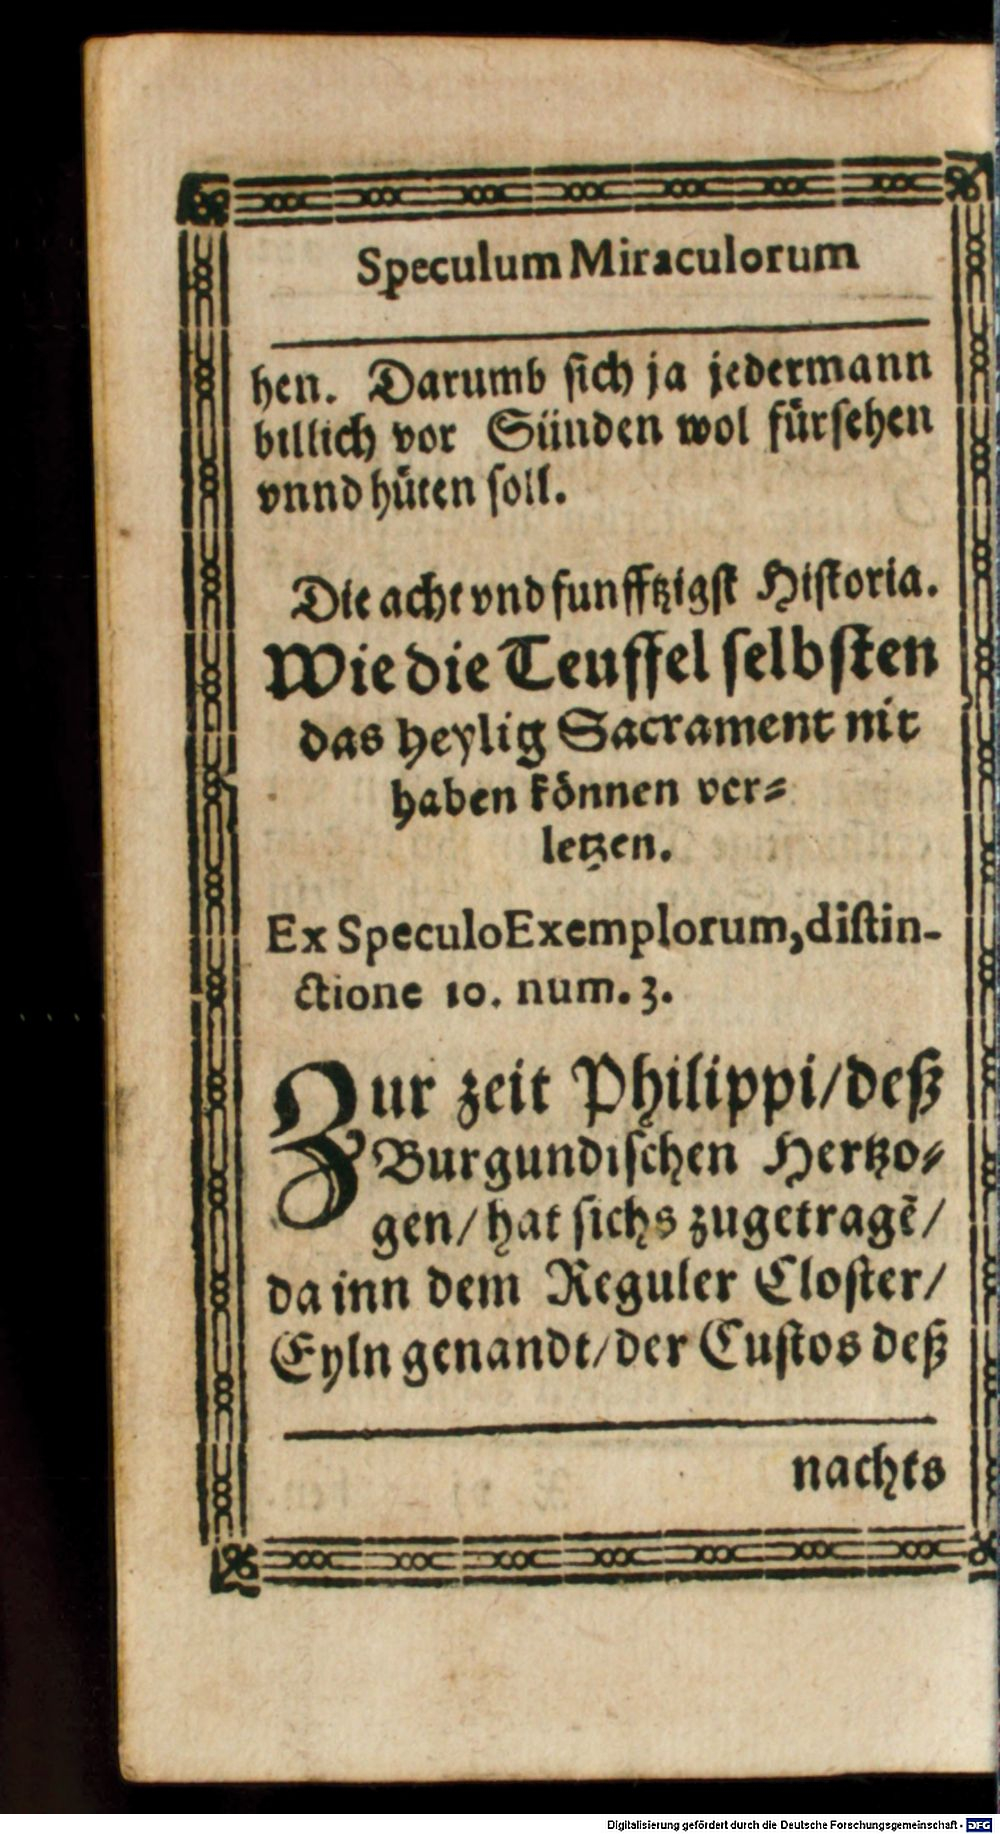 Speculum Miraculorum
hen. Darumb sich ja jedermann
billich vor Sünden wol fürsehen
vnnd hüten soll.
Die acht vnd funfftzigst Historia.
Wie die Teuffel selbsten
das heylig Sacrament nit
haben können ver⸗
letzen.
Ex Speculo Exemplorum, distin-
ctione 10. num. 3.
Zur zeit Philippi/ deß
Burgundischen Hertzo⸗
gen/ hat sichs zugetragẽ/
da inn dem Reguler Closter/
Eyln genandt/ der Custos deß
nachts
Digitalisierung gefördert durch die Deutsche Forschungsgemeinschaft - DFG